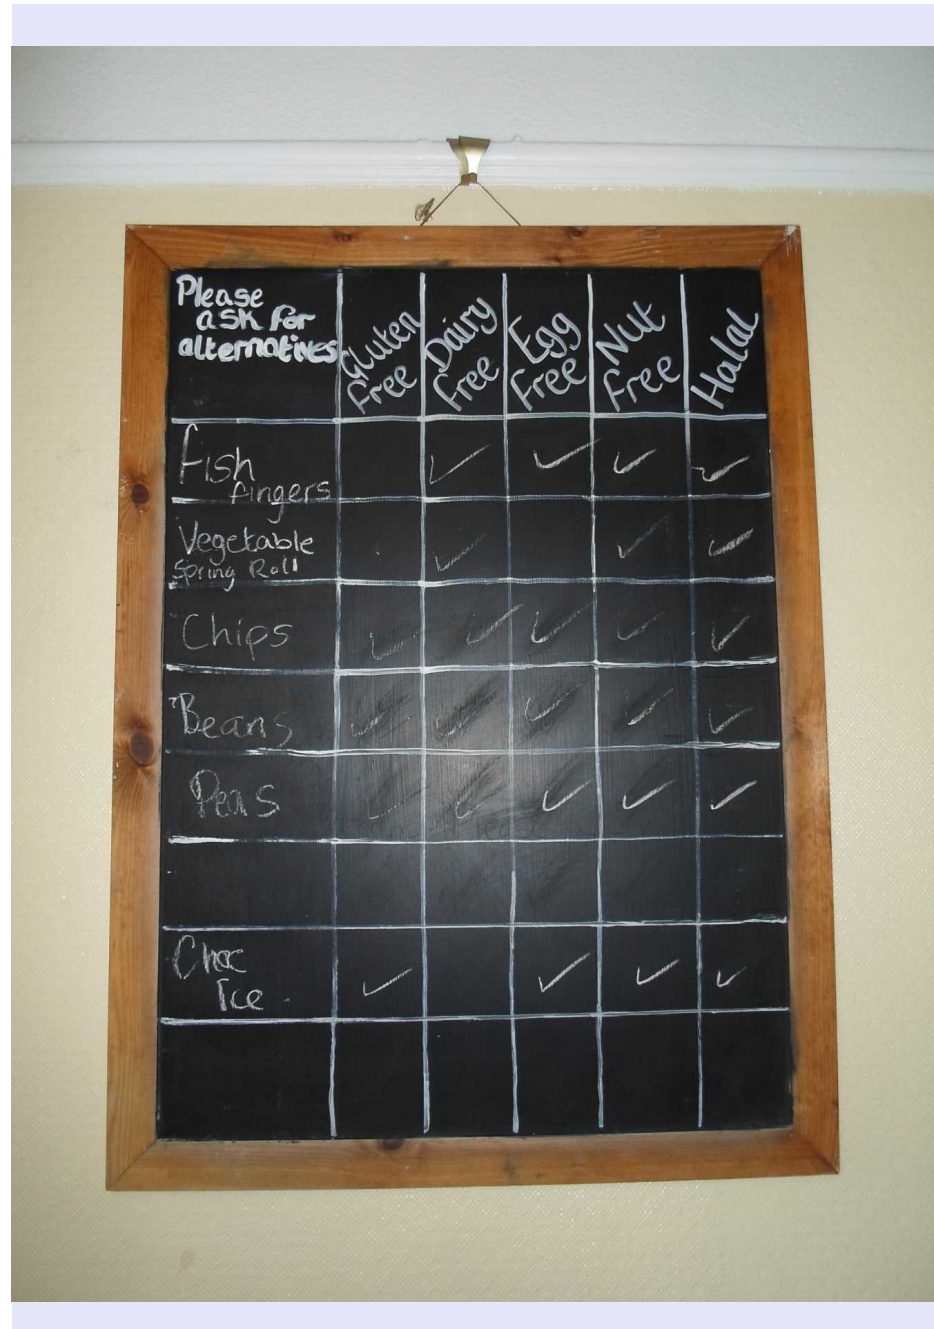 Please
ask for
alternatives
Gluten
Free
Dairy
Free
Egg
Free
Nut
Free
Halal
Fish
fingers
Vegetable
Spring Roll
Chips
Beans
Peas
Choc
Ice